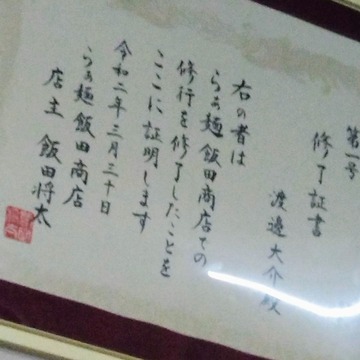 第一号
修了証書
渡邉大介殿
右の者は
らぁ麺飯田商店での
修行を修了したことを
ここに証明します
令和二年三月三十日
らぁ麺飯田商店
店主 飯田将太